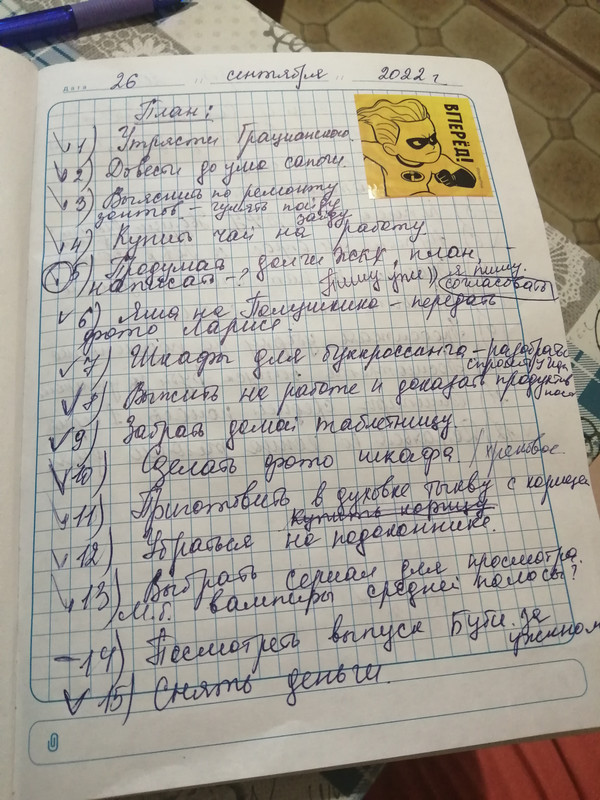 Дата 26 " сентября " 2022 г
План:
ВПЕРЁД!
1) Утрясти Грацианского
2) Довести до ума сапоги
3) Выяснить по ремонту
зонтов – гулять пойду
зайду
4) Купить чай на работу
5) Продумать долги ЖСКК, план,
написать - ? Пишу уже)) я пишу
согласовать
6) Яша на Полушкино - передать
фото Ларисе.
7) Шкафы для буккроссинга – разобрать
спросить у
8) Выжить на работе и доказать продуктив
ность
9) Забрать домой таблетницу.
10) Сделать фото шкафа /
11) Приготовить в духовке тыкву с корицей
купить корицу
12) Убраться на подоконнике.
13) Выбрать сериал для просмотра.
М.б. вампиры средней полосы?
14) Посмотреть выпуск Бути. за
ужином
15) Снять деньги.